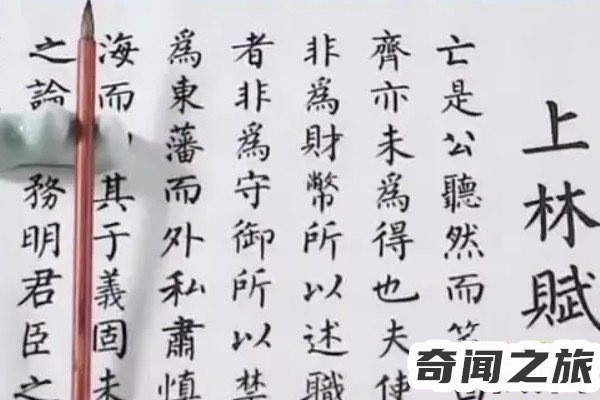 上林賦
亡是公聽然而笑曰
齊亦未為得也夫使
非為財幣所以述職
者非為守御所以禁
為東藩而外私肅慎
海而其于義固未
之論務明君臣之
奇闻之旅